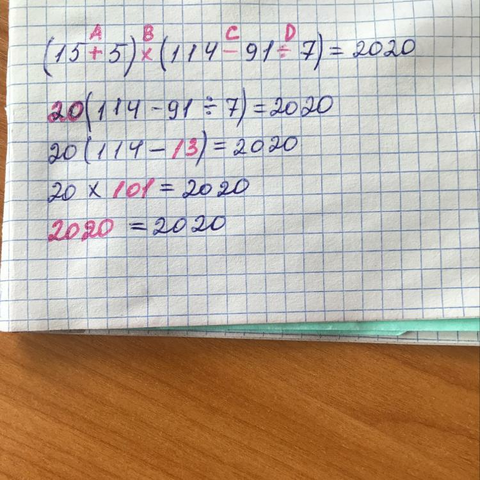 A B C D
(15+5)×(114-91÷7)=2020
20(114-91÷7)=2020
20(114-13)=2020
20×101=2020
2020=2020